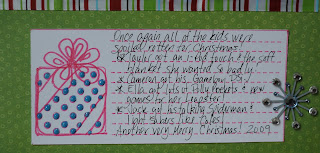 Once again all of the kids were
spoiled rotten for Christmas!
got an i-tod touch & the soft
blanket she wanted so badly
Cameron got his Gameboy DSi
Ella got lots of Polly Pockets & new
games for her Leapster!
Jack got his talking Spiderman &
light sabers like Coles.
Another very Merry Christmas! 2009